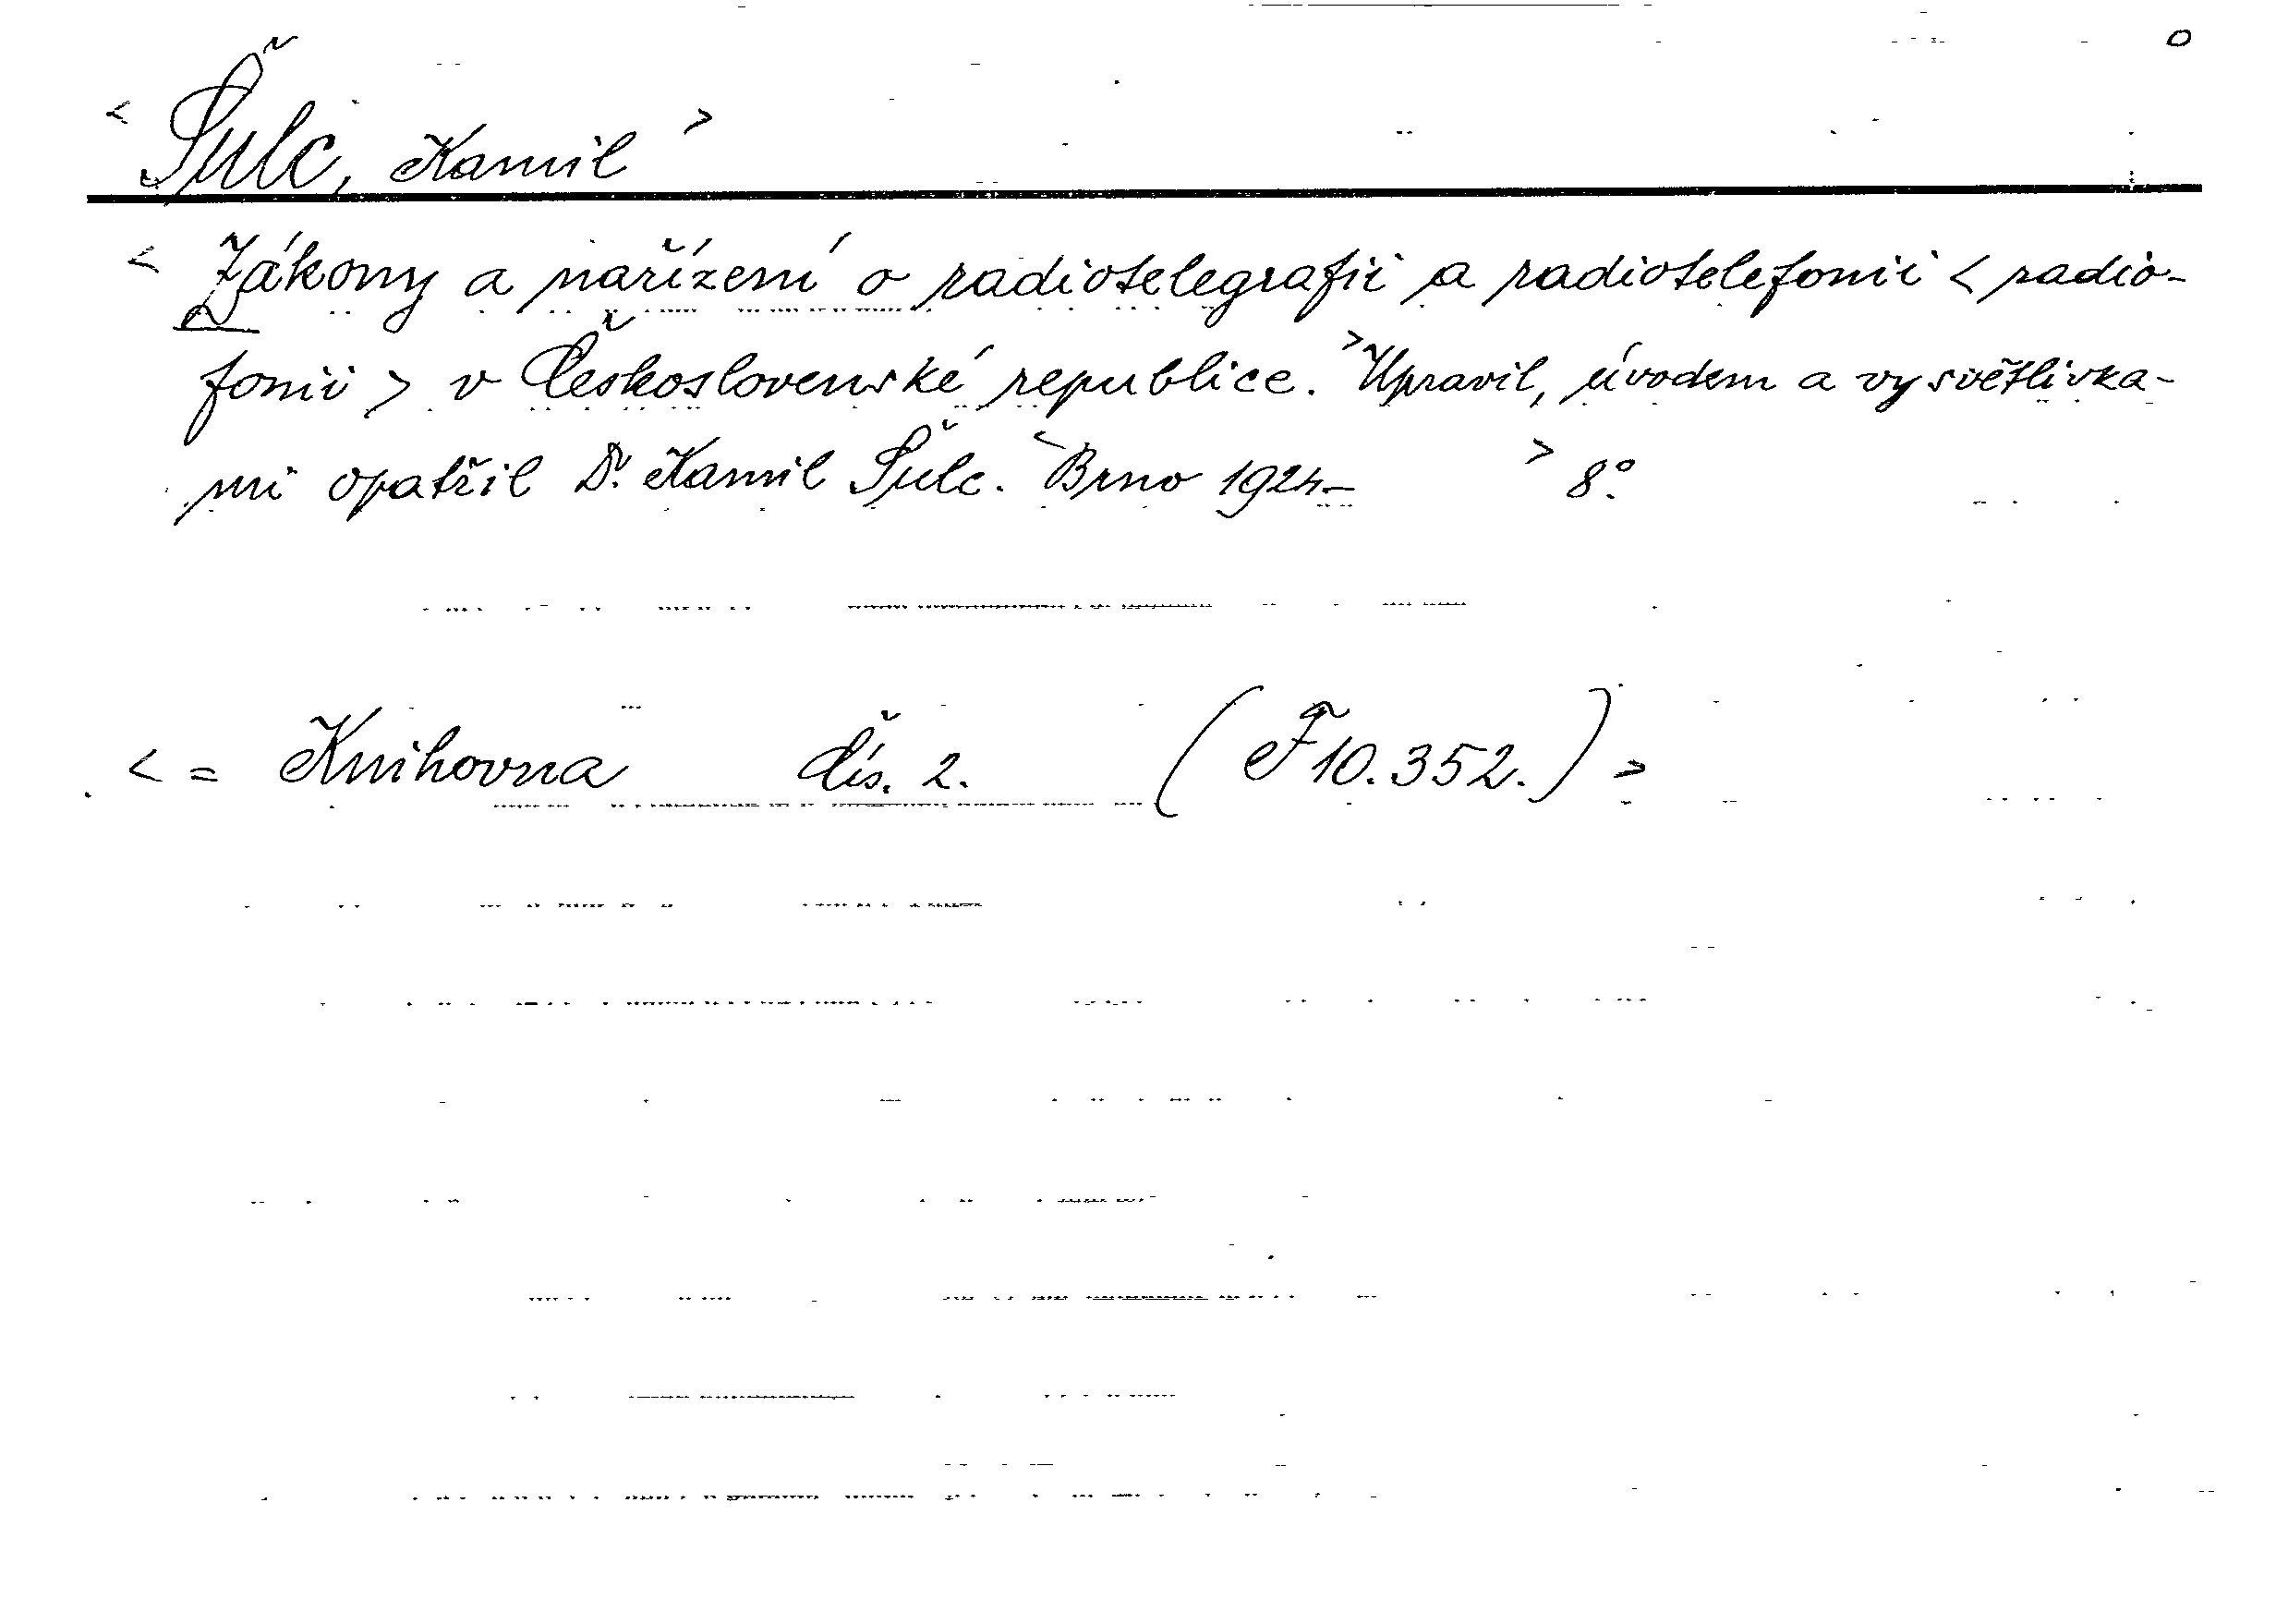 o
< Šulc, Kamil >
< Zákony a nařízení o radiotelegrafii a radiotelefonii < radio-
fonii > v Československé republice. > Upravil, úvodem a vysvětlivka-
mi opatřil Dr. Kamil Šulc. < Brno 1924.– > 8°.
< = Knihovna čís. 2. (F 10.352.) >